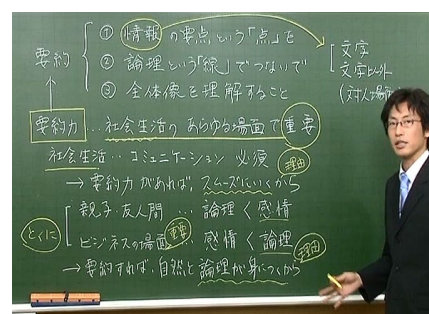 要約
① 情報の要点という「点」を
② 論理という「線」でつないで
③ 全体像を理解すること
文字
文字
(対人場面
要約力…社会生活のあらゆる場面で重要
社会生活…コミュニケーション 必須
理由
→要約力があれば、スムーズにいくから
とくに
親子・友人間…論理<感情
ビジネスの場面…感情<論理
重要
理由
→要約すれば、自然と論理が身につくから